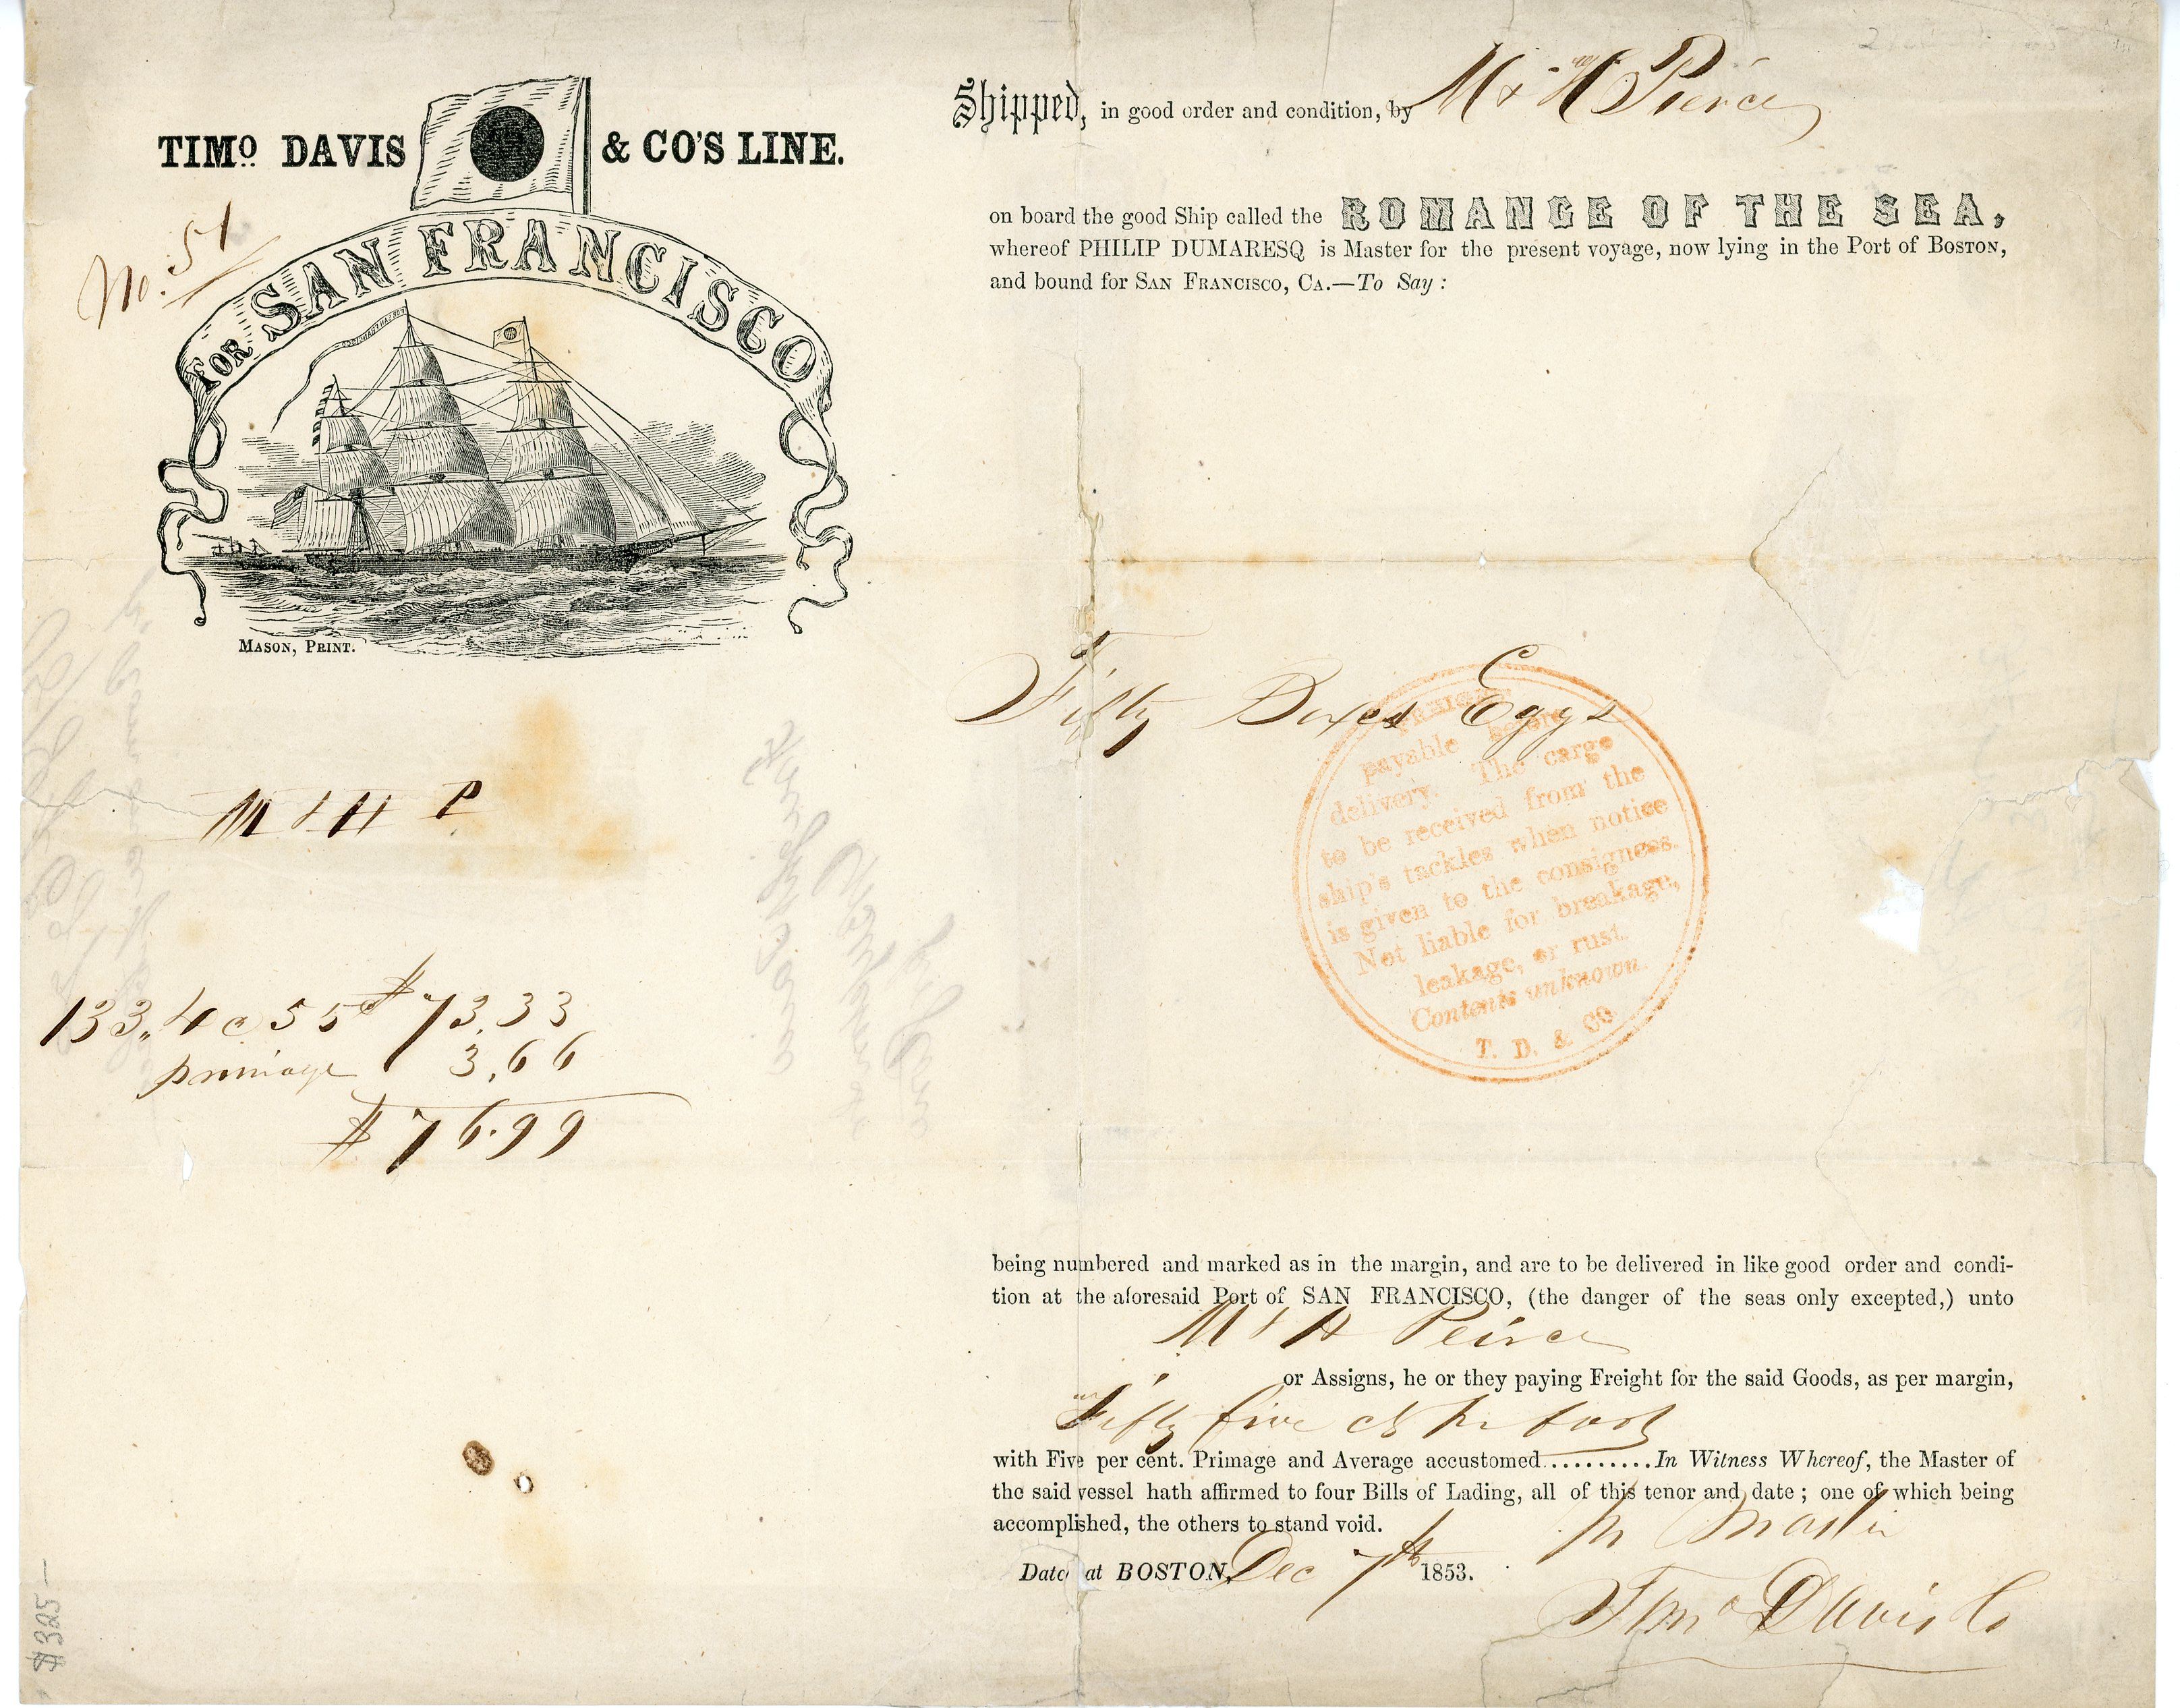 TIMO. DAVIS & CO'S LINE.
No. 51
FOR SAN FRANCISCO
MASON, PRINT.
M & H P
133.4 @ 55c $73.33
primage 3.66
$76.99
$325—
Shipped, in good order and condition, by M & H Peirce
on board the good Ship called the ROMANCE OF THE SEA,
whereof PHILIP DUMARESQ is Master for the present voyage, now lying in the Port of BOSTON,
and bound for SAN FRANCISCO, CA.—To Say:
Fifty Boxes Eggs
FREIGHT
payable before
delivery. The cargo
to be received from the
ship's tackles when notice
is given to the consignees.
Not liable for breakage,
leakage, or rust.
Contents unknown.
T. D. & CO.
being numbered and marked as in the margin, and are to be delivered in like good order and condi-
tion at the aforesaid Port of SAN FRANCISCO, (the danger of the seas only excepted,) unto
M & H Peirce
or Assigns, he or they paying Freight for the said Goods, as per margin,
Fifty five cts pr foot
with Five per cent. Primage and Average accustomed..........In Witness Whereof, the Master of
the said vessel hath affirmed to four Bills of Lading, all of this tenor and date; one of which being
accomplished, the others to stand void.
pr Master
Date at BOSTON, Dec 7th 1853.
Timo Davis Co